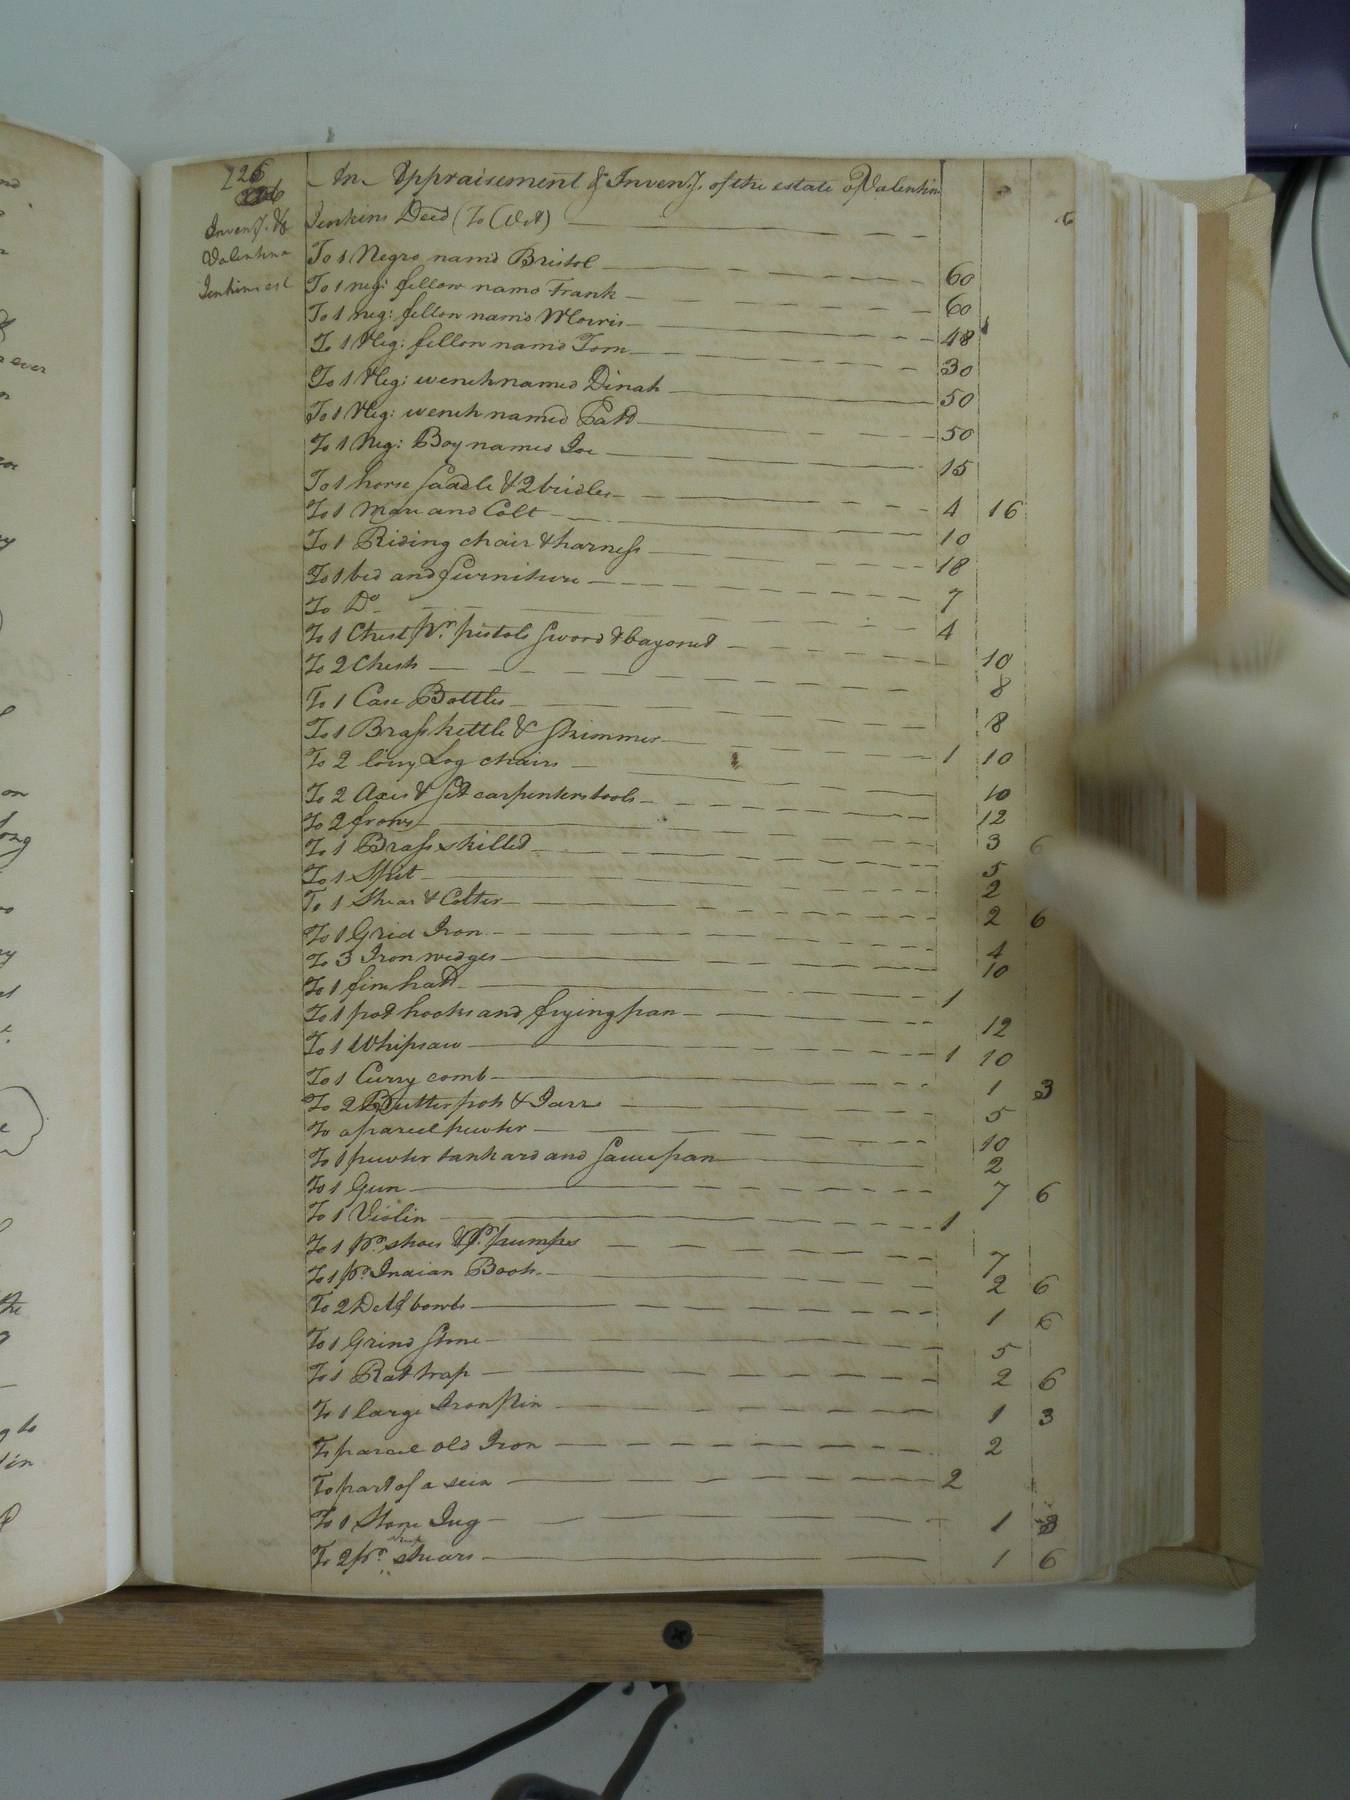 226
Inveny. &c
Valentine
Jenkins est
An Appraisement & Inveny. of the estate of Valentin
Jenkins Decd (To Wit)
To 1 Negro namd Bristol 60
To 1 neg: fellow namd Frank 60
To 1 neg: fellow namd Morris 48
To 1 Neg: fellow namd Tom 30
To 1 Neg: wench named Dinah 50
To 1 Neg: wench named Patt 50
To 1 Neg: Boy named Joe 15
To 1 horse Saddle & 2 bridles 4 16
To 1 Mare and Colt 10
To 1 Riding chair & harness 18
To 1 bed and furniture 7
To Do. 4
To 1 Chest pr. pistols Sword & bayonet 10
To 2 Chests 8
To 1 Case Bottles 8
To 1 Brass kettle & Skimmer 1 10
To 2 Log chains 10
To 2 Axes & Set carpenters tools 12
To 2 frows 3 6
To 1 Brass skilled 5
To 1 Spit 2
To 1 Shear & Colter 2 6
To 1 Grid Iron 4
To 3 Iron wedges 10
To 1 hatt 1
To 1 pot hooks and frying pan 12
To 1 Whipsaw 1 10
To 1 Curry comb 1 3
To 2 Butter pots & Jarrs 5
To a parcel pewter 10
To 1 pewter tankard and Saucepan 2
To 1 Gun 7 6
To 1 Violin 1
To 1 pr. shoes & Pr. pumps 7
To 1 pr. Indian Boots 2 6
To 2 Delf bowls 1 6
To 1 Grind Stone 5
To 1 Rat trap 2 6
To 1 large Iron Pin 1 3
To parcel old Iron 2
To part of a sein 2
To 1 Stone Jug 1 3
To 2 pr. shears 1 6